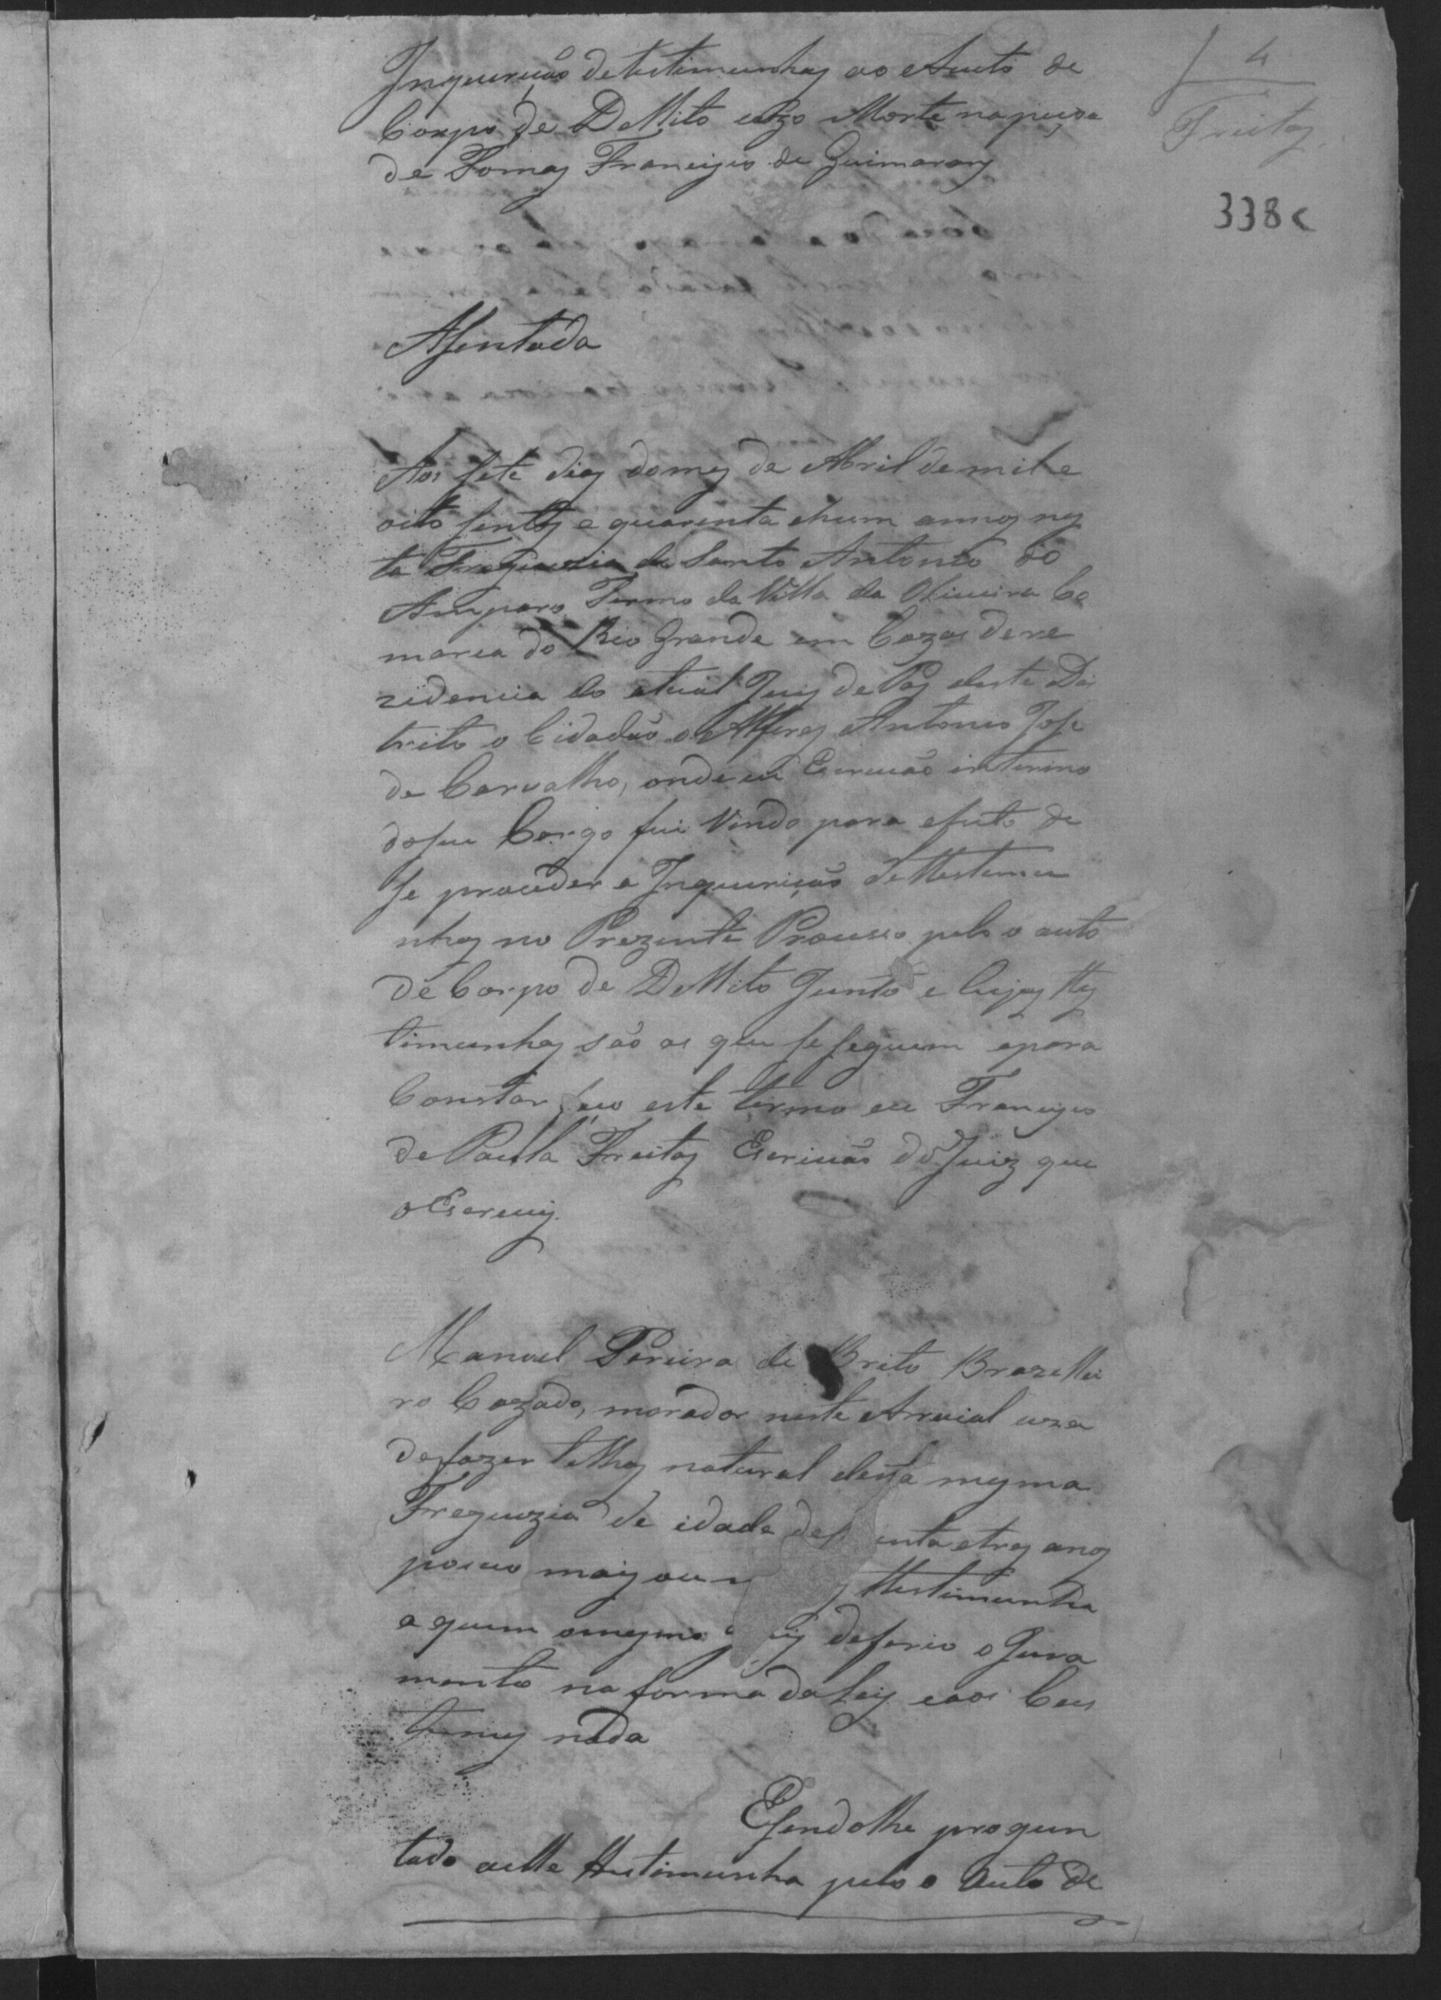 Inquirição detestimunhas ao Auto de
Corpo de Dellito e uzo Morte napesoa
de Tomas Francisco de Guimarans
4
Freitas
338 c
Assentada
Aos sete dias domes de Abril de mil e
oito sentos e quarenta ehum annos nes
ta Freguezia de Santo Antonio do
Amparo Termo da Villa da Oliveira Co
marca do Rio Grande em Cazas dere
zidencia do atual Juis de Pas deste Dis
trito o Cidadão o Alferes Antonio Jose
de Carvalho, onde eu Escrivão interino
doseu Cargo fui Vindo para efeito de
se proceder a Inquirição deTtestimu
nhas no Prezente Processo pelo o auto
de Corpo de Dellito Junto e Cujas ttes
timunhas são as que se seguem epara
Constar faço este termo eu Francisco
de Paula Freitas Escrivão do Juiz que
o Escrevy
Manoel Pereira de Brito Brazillei
ro Cazado, morador neste Arraial uza
defazer telhas natural desta mesma
Freguezia de idade de enta etres anos
pouco mais ou ttestimunha
a quem omesmo Juis deferio o Jura
mento na forma daLey eaos Cus
tumes nada
Esendolhe progun
tado aelle ttestimunha pelo o Auto de